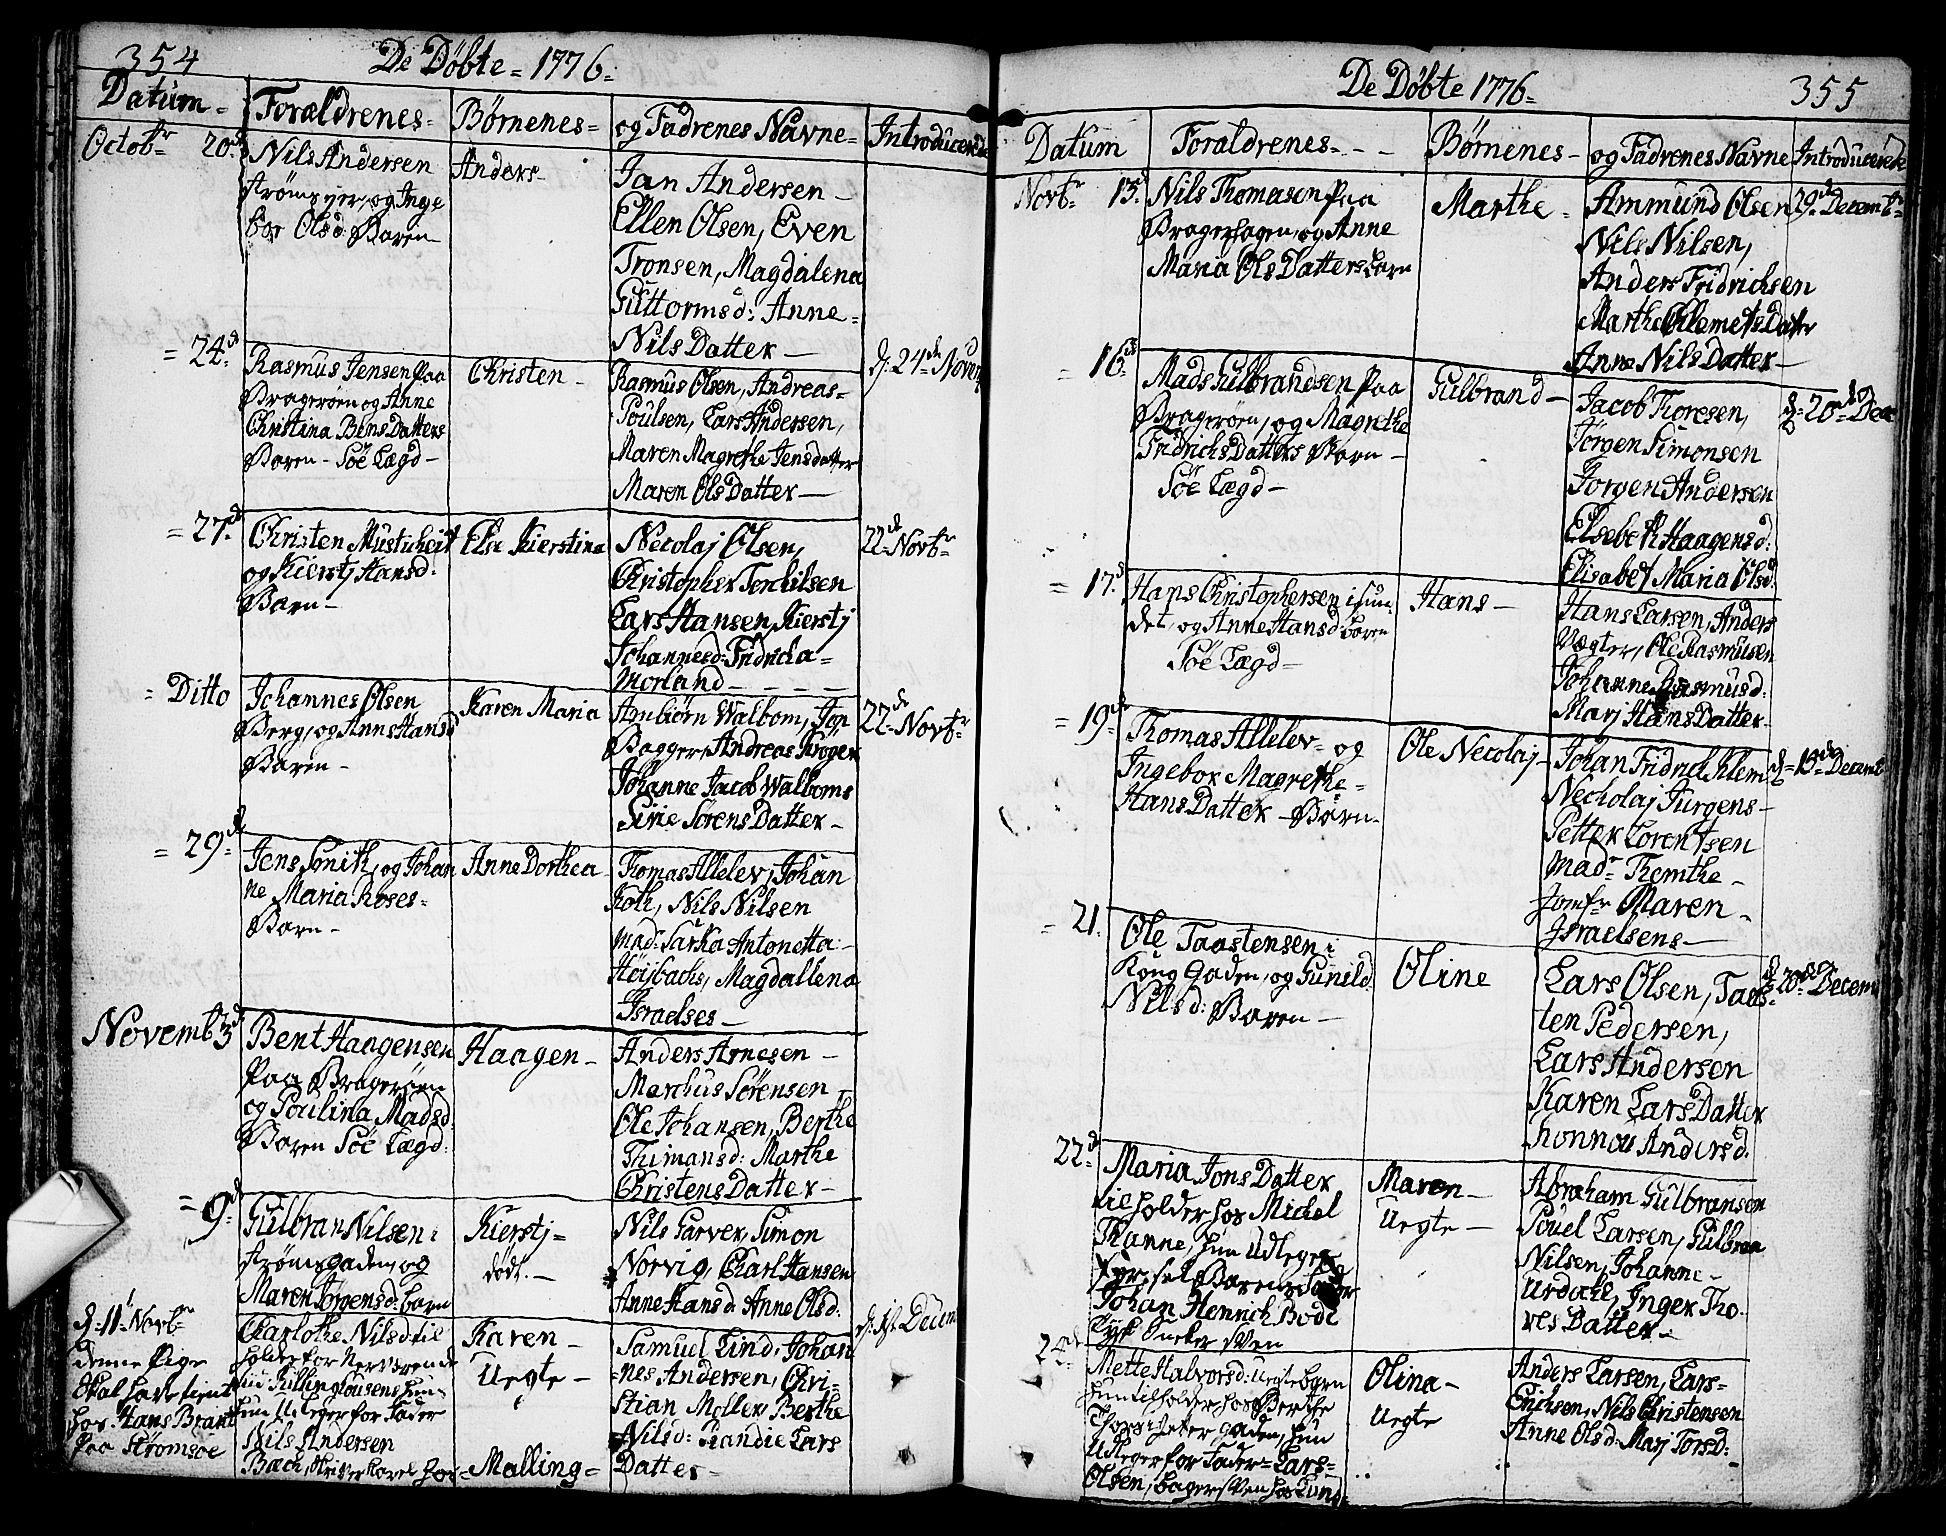 354
De Døbte = 1776.
Datum = Foraldrenes = Børnenes = og Fadrenes Navne = Introducerede
Octobr 20d
Nils Andersen
og Inge
bor Olsd: Barn
Anders
Jan Andersen —
Ellen Olsen, Even
Tronsen, Magdalena
Guttormsd: Anne =
Nils Datter —
= 24d
Rasmus Jensen paa
Bragerøen og Anne
Christina Bens Datters
Barn - Søe Lægd —
Christen —
Rasmus Olsen, Andreas =
Poulsen, Lars Andersen,
Maren Magrethe Jensdatter
Maren Ols Datter —
d: 24de Novem
= 27d
Christen
og Kierstj Hansd:
Barn —
Else Kierstina
Necolaj Olsen,
Christopher Terchilsen
Lars Hansen, Kierstj
Johannesd: Fridricha =
Morland —
22d Novbr
= Ditto
Johannes Olsen
Berg, og Anne Hansd
Barn —
Karen Maria
Arnbiørn Walbom, Jan
Bagger, Andreas Krøger
Johanne Jacob Walboms
Sirie Sørens Datter —
22d Novbr
= 29d
Jens Smith, og Johan
ne Maria Roses =
Barn —
Anne Dorthea —
Thomas Allelev, Johan
Koth, Nils Nilsen
Mad: Sarka Antonetta =
Høijbachs, Magdallena
Israelses —
Novemb 3d
Bent Haagensen
Paa Bragerøen
og Poulina Madsd:
Barn Søe Lægd:
Haagen —
Anders Arnesen —
Marchus Sørensen —
Ole Johansen, Berthe
Thimansd: Marthe
Christens Datter —
= 9d
Gulbran Nilsen i
Strømsgaden, og
Maren Jørgensd: barn
Kierstj =
død. —
Nils Garver, Simon
Norvig, Charl Hansen
Anne Hansd: Anne Olsd:
d: 11t Novbr
denne Pige
Skal have tient
hos Hans Brant
paa Strømsøe
Charlothe Nilsd til
holder for nerverende
hun Udleger for Fader
Nils Andersen
Karen —
Uegte —
Malling =
Samuel Lind, Johan
= nes Andersen, Chri =
stian Møller, Berthe
Nilsd: Randie Lars
Datter —
Decem
De Døbte 1776 =
355
Datum Foraldrenes = - - Børnenes = og Fadrenes Navne Introducerede
Novbr 13d
Nils Thomasen paa
Bragerhagen, og Anne
Maria Ols Datters barn
Marthe =
Ammund Olsen
Nils Nilsen,
Anders Fridrichsen
Marthe Clemets Datter
Anne Nils Datter —
29de Decembr
= 16d
Mads Gulbrandsen Paa
Bragerøen, og Magrethe
Fridrichs Datters Barn —
Søe Lægd —
Gulbrand —
Jacob Toresen,
Jørgen Simonsen
Jørgen Andersen
Elsebeth Haagensd:
Elisabet Maria Olsd.
d: 20d Dec
= 17d
Hans Christophersen i sun =
det, og Anne Hansd: barn
Søe Lægd —
Hans —
Hans Larsen, Anders
Vegter, Ole Rasmusen
Johanne Rasmusd:
Marj Hans Datter —
= 19d
Thomas Allelev = og
Ingebor Magrethe =
Hans Datter — Barn —
Ole Necolaj —
Johan Fridrich Klem
Necholaj Jurgens —
Petter Lorentsen
Madr Themthe —
Jomfr Maren —
Israelsens —
d: 19de Decemb
= 21.
Ole Taastensen i
Kong Gaden, og Gunild
Nilsd: Barn —
Oline
Lars Olsen, Taas =
ten Pedersen,
Lars Andersen
Karen Lars Datter
Ronnou Andersd.
d: 20de Decem
22d
Maria Jons Datter
tilholder hos Michel
Thanne, hun Udleger
Johan Henrich Bode
Maren —
Uegte —
Abraham Gulbransen
Pouel Larsen, Gulbran
Nilsen, Johanne —
Urdahl, Inger Tho.
res Datter —
24de
Mette Halvorsd: uegte barn
hun tilholder hos Berthe
gaden, hun
Udleger for Fader = Lars =
Olsen, bager sven hos Lund
Olina —
Uegte
Anders Larsen, Lars =
Erichsen, Nils Christensen
Anne Olsd: Marj Torsd: